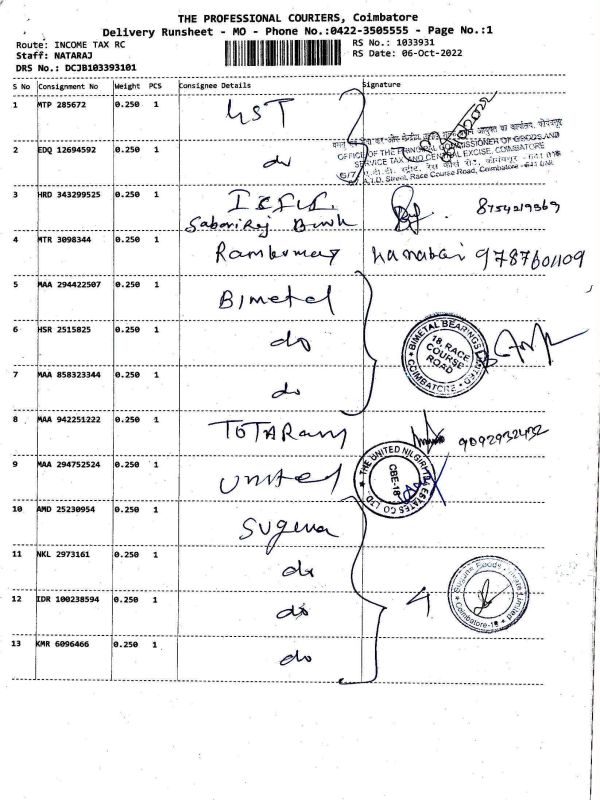 THE PROFESSIONAL COURIERS, Coimbatore
Delivery Runsheet - MO - Phone No.:0422-3505555 - Page No.:1
Route: INCOME TAX RC
RS No.: 1033931
Staff: NATARAJ
RS Date: 06-Oct-2022
DRS No.: DCJB103393101
S No Consignment No Weight PCS Consignee Details Signature
1 MTP 285672 0.250 1 GST
2 EDQ 12694592 0.250 1 do
OFFICE OF THE PRINCIPAL COMMISSIONER OF GOODS AND
SERVICE TAX AND CENTRAL EXCISE, COIMBATORE
6/7, ए.टी.डी. स्ट्रीट, रेस कोर्स रोड, कोयंबतूर - 641 018
A.T.D. Street, Race Course Road, Coimbatore - 641 018.
3 HRD 343299525 0.250 1 8754219369
4 MTR 3098344 0.250 1 Ramkumar 9787601109
5 MAA 294422507 0.250 1 Bimetal
6 HSR 2515825 0.250 1 do
BIMETAL BEARINGS LIMITED
18, RACE
COURSE
ROAD
COIMBATORE
7 MAA 858323344 0.250 1 do
8 MAA 942251222 0.250 1 TOTARam 9092932432
9 MAA 294752524 0.250 1 United
THE UNITED NILGIRI TEA ESTATES CO LTD
CBE-18
10 AMD 25230954 0.250 1 Suguna
11 NKL 2973161 0.250 1 do
12 IDR 100238594 0.250 1 do 4
Suguna Foods Private Limited
Coimbatore-18
13 KMR 6096466 0.250 1 do